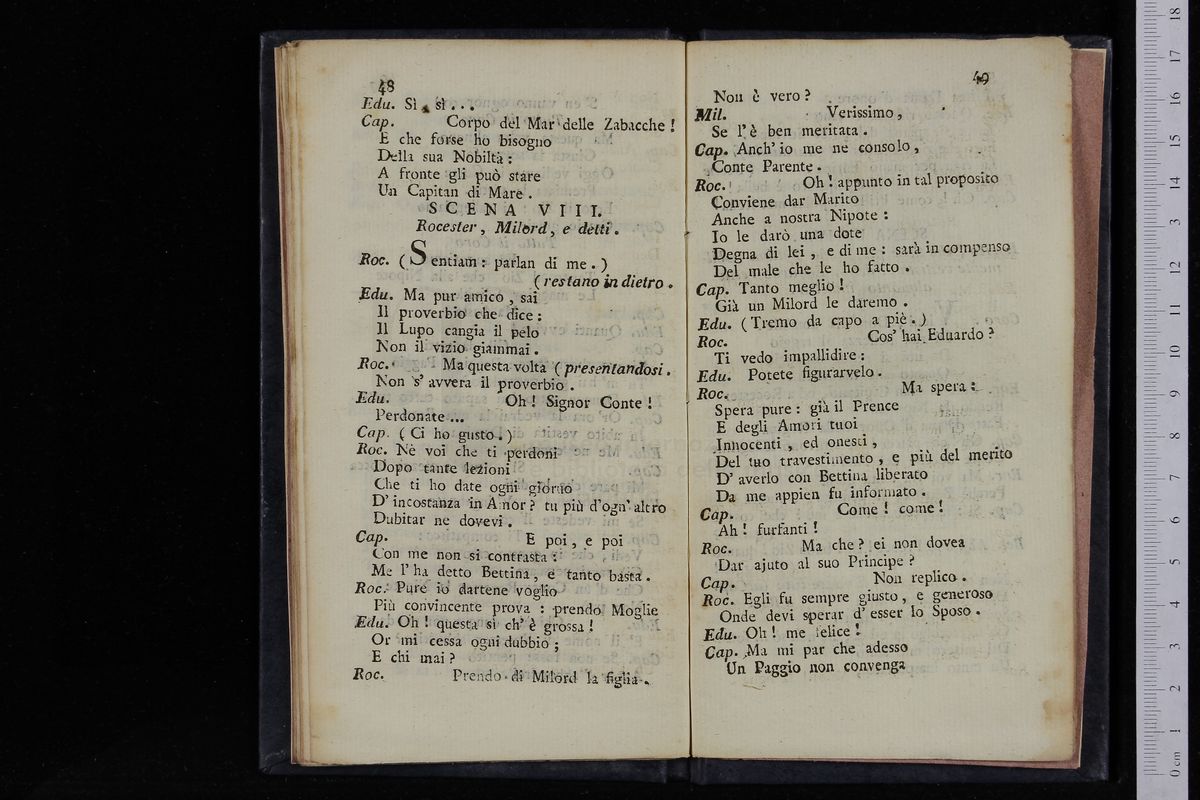 48
Edu. Sì, sì...
Cap. Corpo del Mar delle Zabacche!
E che forse ho bisogno
Della sua Nobiltà:
A fronte gli può stare
Un Capitan di Mare.
SCENA VIII.
Rocester, Milord, e detti.
Roc. (Sentiam: parlan di me.)
(restano in dietro.
Edu. Ma pur amico, sai
Il proverbio che dice:
Il Lupo cangia il pelo
Non il vizio giammai.
Roc. Ma questa volta (presentandosi.
Non s' avvera il proverbio.
Edu. Oh! Signor Conte!
Perdonate...
Cap. (Ci ho gusto.)
Roc. Nè voi che ti perdoni
Dopo tante lezioni
Che ti ho date ogni giorno
D' incostanza in Amor? tu più d'ogn' altro
Dubitar ne dovevi.
Cap. E poi, e poi
Con me non si contrasta:
Me l' ha detto Bettina, e tanto basta.
Roc. Pure io dartene voglio
Più convincente prova: prendo Moglie
Edu. Oh! questa sì ch' è grossa!
Or mi cessa ogni dubbio;
E chi mai?
Roc. Prendo di Milord la figlia.
49
Non è vero?
Mil. Verissimo,
Se l' è ben meritata.
Cap. Anch' io me ne consolo,
Conte Parente.
Roc. Oh! appunto in tal proposito
Conviene dar Marito
Anche a nostra Nipote:
Io le darò una dote
Degna di lei, e di me: sarà in compenso
Del male che le ho fatto.
Cap. Tanto meglio!
Già un Milord le daremo.
Edu. (Tremo da capo a piè.)
Roc. Cos' hai Eduardo?
Ti vedo impallidire:
Edu. Potete figurarvelo.
Roc. Ma spera:
Spera pure: già il Prence
E degli Amori tuoi
Innocenti, ed onesti,
Del tuo travestimento, e più del merito
D' averlo con Bettina liberato
Da me appien fu informato.
Cap. Come! come!
Ah! furfanti!
Roc. Ma che? ei non dovea
Dar ajuto al suo Principe?
Cap. Non replico.
Roc. Egli fu sempre giusto, e generoso
Onde devi sperar d' esser lo Sposo.
Edu. Oh! me felice!
Cap. Ma mi par che adesso
Un Paggio non convenga